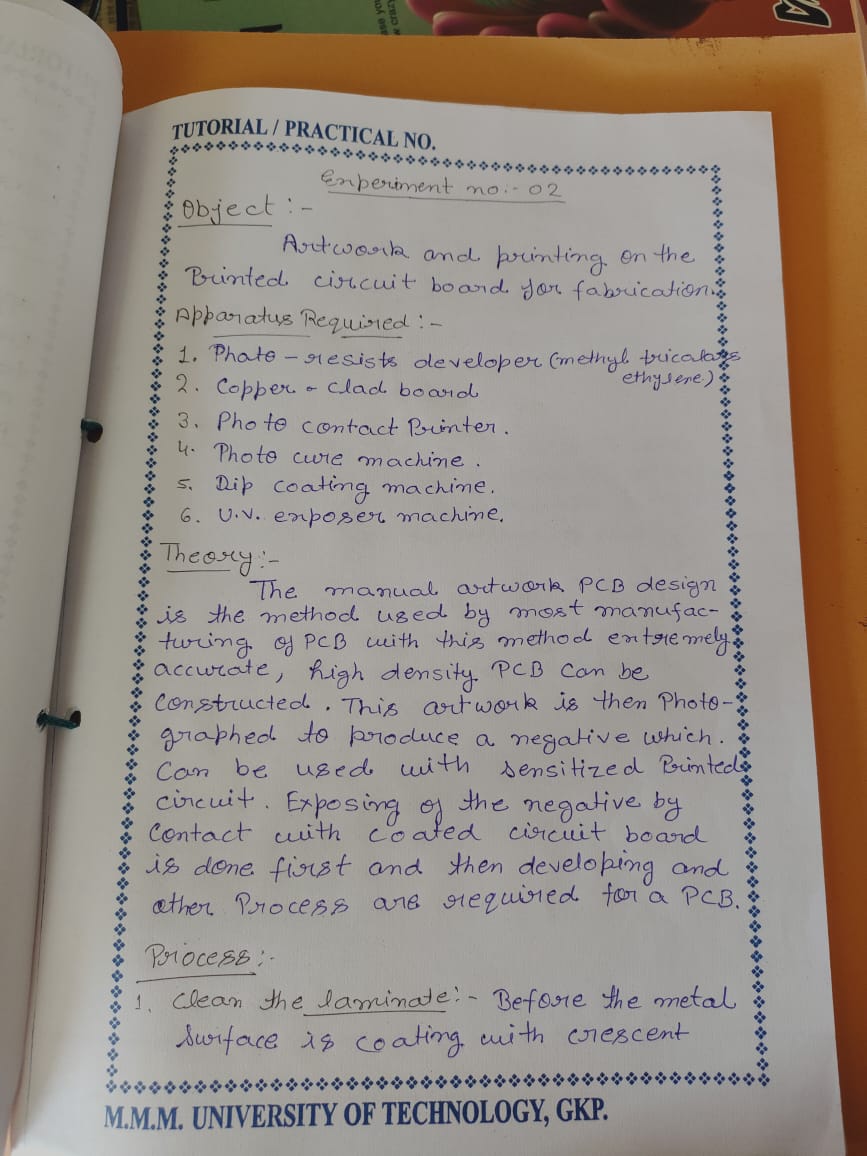 TUTORIAL / PRACTICAL NO.
Experiment no:- 02
Object :-
Artwork and printing on the
Printed circuit board for fabrication.
Apparatus Required :-
1. Photo - resists developer (methyl
ethylene)
2. Copper - clad board
3. Photo contact Printer.
4. Photo cure machine.
5. Dip coating machine.
6. U.V. exposer machine.
Theory :-
The manual artwork PCB design
is the method used by most manufac-
turing of PCB with this method extremely
accurate, high density PCB can be
constructed. This artwork is then Photo-
graphed to produce a negative which.
can be used with sensitized Printed
circuit. Exposing of the negative by
contact with coated circuit board
is done first and then developing and
other Process are required for a PCB.
Process :-
1. Clean the laminate :- Before the metal
surface is coating with crescent
M.M.M. UNIVERSITY OF TECHNOLOGY, GKP.